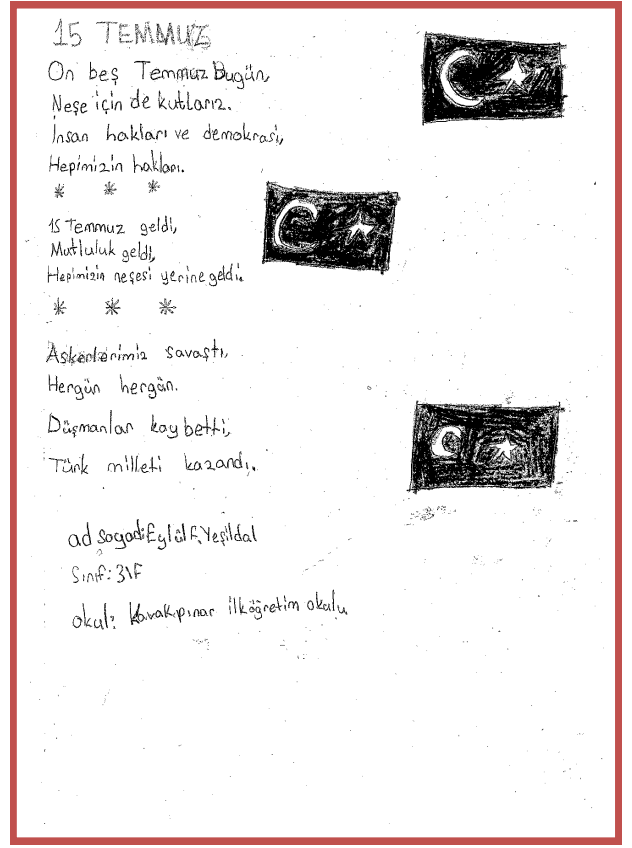 15 TEMMUZ
On beş Temmuz Bugün,
Neşe için de kutlarız.
İnsan hakları ve demokrasi,
Hepimizin hakları.
* * *
15 Temmuz geldi,
Mutluluk geldi,
Hepimizin neşesi yerine geldi.
* * *
Askerlerimiz savaştı,
Hergün hergün.
Düşmanlar kay betti,
Türk milleti kazandı.
ad soyadı: Eylül F. Yeşildal
Sınıf: 3\F
okul: Kavakpınar ilköğretim okulu